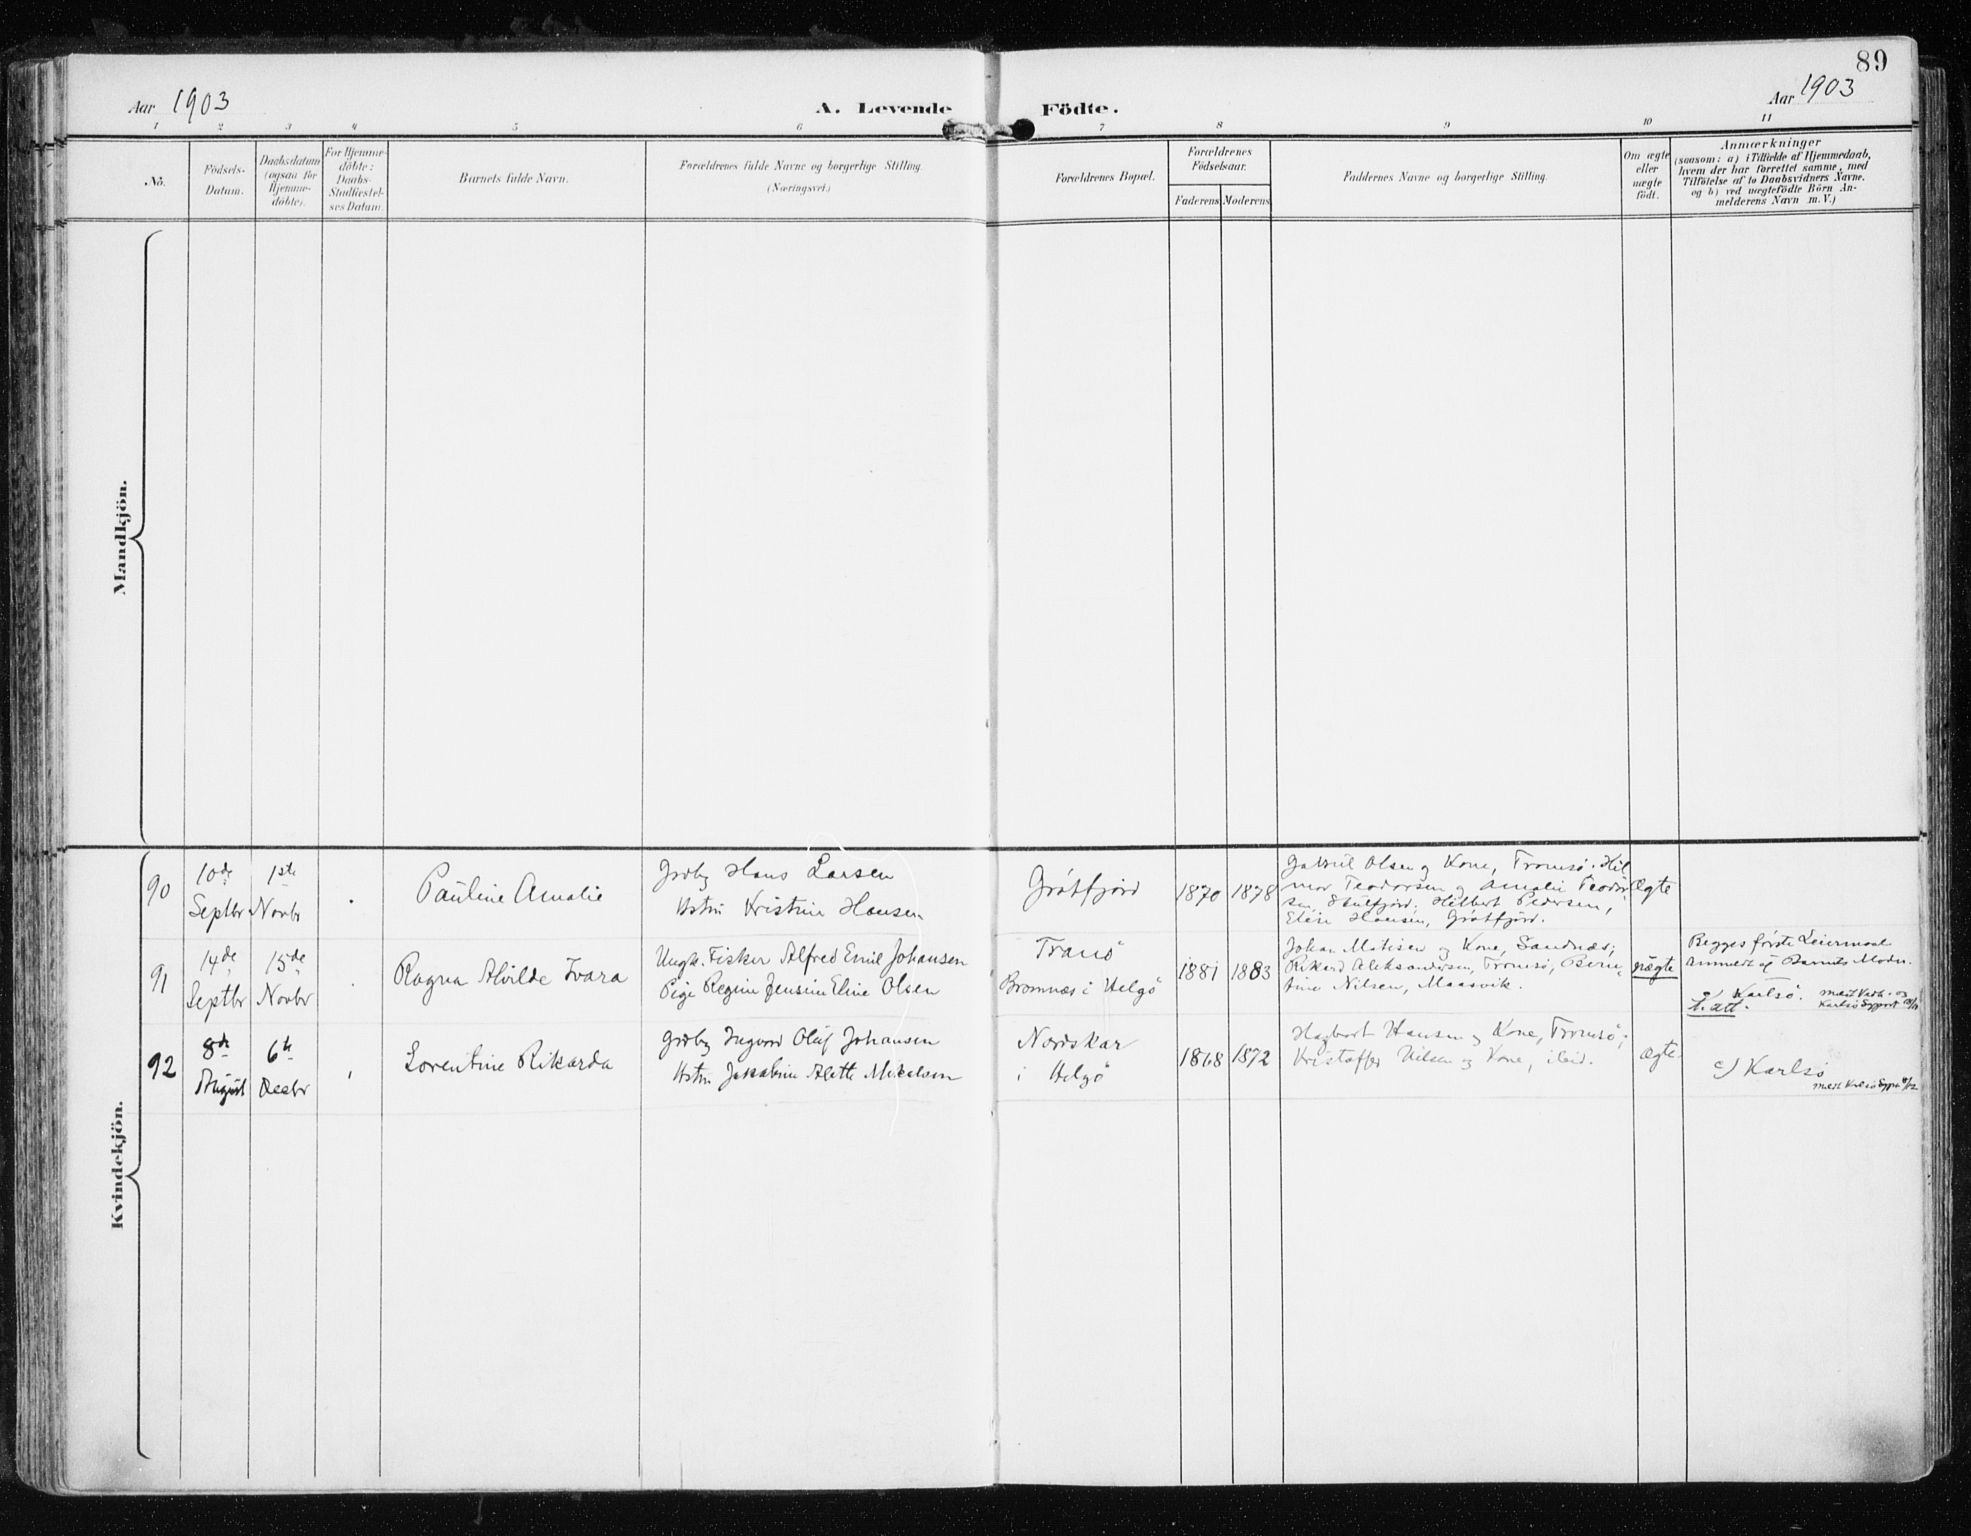 89
Aar 1903
A. Levende Födte.
Aar 1903
1 2 3 4 5 6 7 8 9 10 11
No.
Födsels-
Datum.
Daabsdatum
(ogsaa for
Hjemme-
döbte).
For Hjemme-
döbte:
Daabs-
Stadfæstel-
ses Datum.
Barnets fulde Navn.
Forældrenes fulde Navne og borgerlige Stilling.
(Næringsvei.)
Forældrenes Bopæl.
Forældrenes
Födselsaar.
Faderens Moderens
Faddernes Navne og borgerlige Stilling.
Om ægte
eller
uægte
födt.
Anmærkninger
(saasom: a) i Tilfælde af Hjemmedaab,
hvem der har forrettet samme, med
Tilföielse af to Daabsvidners Navne.
og b) ved uægtefödte Börn An-
melderens Navn m. V.)
Mandkjön.
Kvindekjön.
90
10de
Septbr
1ste
Novbr
Pauline Amalie
Grdbr Hans Larsen
Hstru Kristine Hansen
Grötfjord
1870 1878
Gabriel Olsen og Kone, Tromsö. Hil
mar Teodorsen og Amalie Teodor
sen, Skulfjord. Hilbert Pedersen,
Elise Hansen, Grötfjord.
Ægte
91
14de
Septbr
15de
Novbr
Ragna Alvilde Ivara
Ungk. Fisker Alfred Emil Johansen
Pige Regine Jensine Eline Olsen
Tranö
Bromnæs i Helgö
1881 1883
Johan Matisen og Kone, Sandnæs;
Rikard Aleksandersen, Tromsö, Bern
tine Nilsen, Maasvik.
uægte
Begges förste Leiermaal
Anmeldt af Barnets Moder
c) Karlsö.
92
8de
August
6te
Decbr
Lorentine Rikarda
Grdbr Ingvard Oluf Johansen
Hstru Jakobine Alette Mikalsen
Nordskar
i Helgö
1868 1872
Hagbart Hansen og Kone, Tromsö;
Kristoffer Nilsen og Kone, ibid.
ægte
c) Karlsö